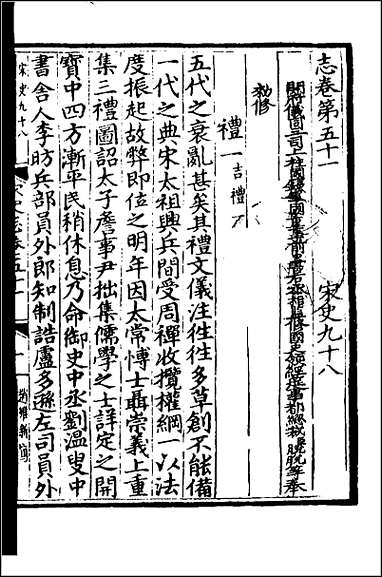 志卷第五十一
宋史九十八
開府儀同三司上柱國錄軍國重事前中書右丞相監修國史領經筵事都總裁脫脫等奉
勑修
禮一吉禮一
五代之衰亂甚矣其禮文儀注往往多草創不能備
一代之典宋太祖興兵間受周禪收攬權綱一以法
度振起故弊即位之明年因太常博士聶崇義上重
集三禮圖詔太子詹事尹拙集儒學之士詳定之開
寶中四方漸平民稍休息乃命御史中丞劉溫叟中
書舍人李昉兵部員外郎知制誥盧多遜左司員外
宋史九十八